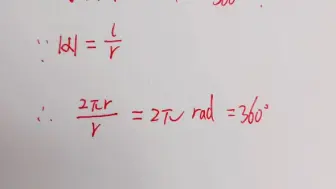 360°
∵ |α| = l/r
∴ 2πr/r = 2π rad = 360°